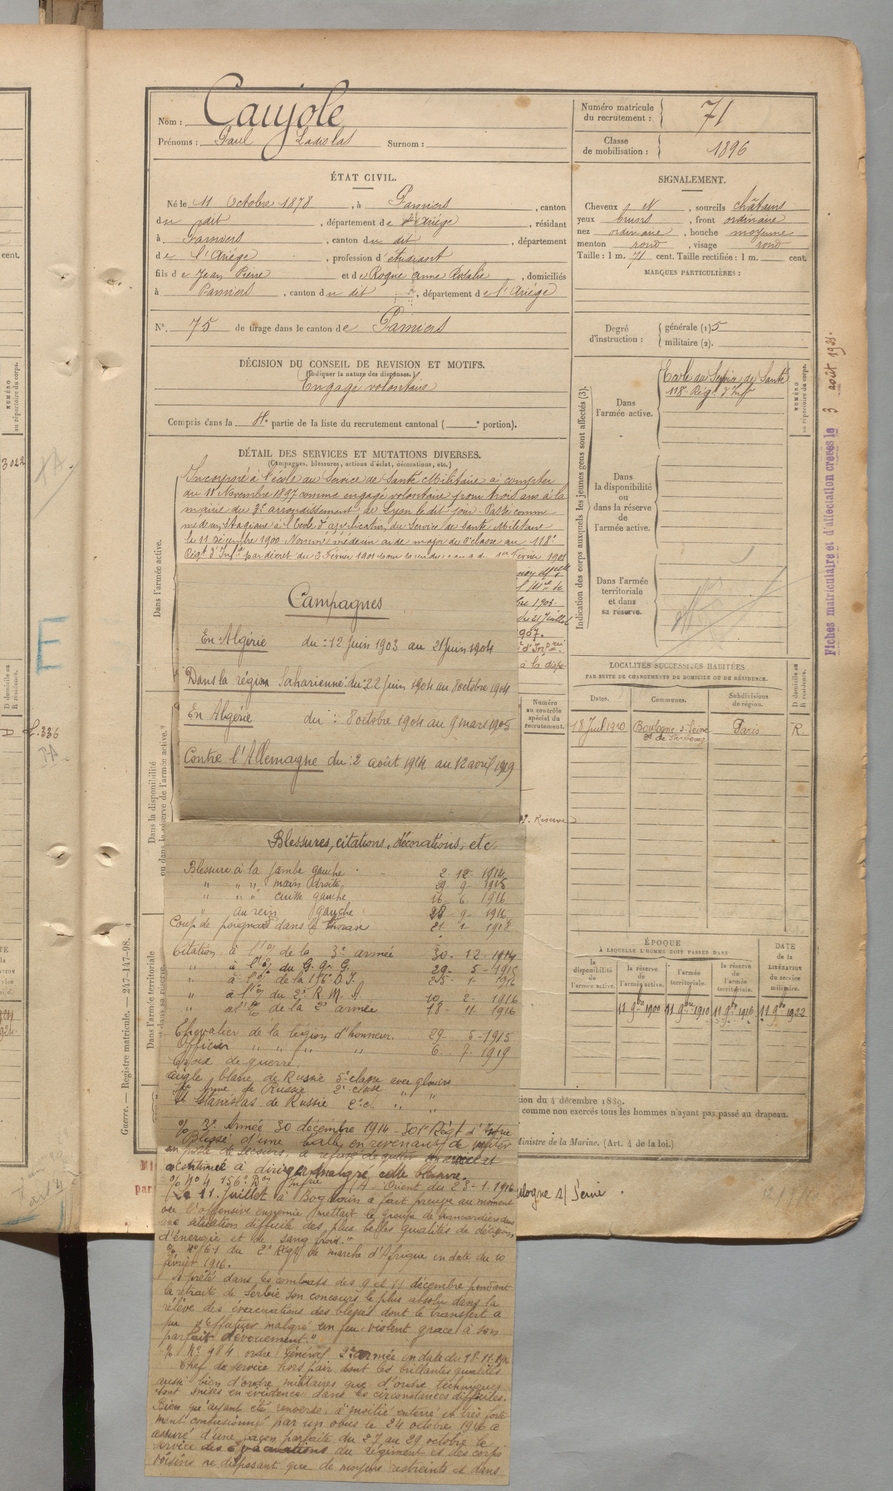 Nom : Caujole
Prénoms : Paul Ladislas Surnom :
Numéro matricule du recrutement : 71
Classe de mobilisation : 1896
ÉTAT CIVIL.
Né le 11 Octobre 1878, à Pamiers, canton
du dit, département de l'Ariège, résidant
à Pamiers, canton du dit, département
de l'Ariège, profession d'étudiant
fils de Jean Pierre et de Roque Anne Rosalie, domiciliés
à Pamiers, canton du dit, département de l'Ariège
N° 75 de tirage dans le canton de Pamiers
SIGNALEMENT.
Cheveux N, sourcils châtains
yeux bruns, front ordinaire
nez ordinaire, bouche moyenne
menton rond, visage rond
Taille : 1 m. 71 cent. Taille rectifiée : 1 m. cent.
MARQUES PARTICULIÈRES :
Degré d'instruction : générale (1) 5
militaire (2).
DÉCISION DU CONSEIL DE REVISION ET MOTIFS.
(Indiquer la nature des dispenses.)
Engagé volontaire
Compris dans la 4e partie de la liste du recrutement cantonal ( e portion).
DÉTAIL DES SERVICES ET MUTATIONS DIVERSES.
(Campagnes, blessures, actions d'éclat, décorations, etc.)
Dans l'armée active.
Incorporé à l'école du Service de Santé Militaire à compter
du 11 Novembre 1897 comme engagé volontaire pour trois ans à la
mairie du 3e arrondissement de Lyon le dit jour. Passé comme
médecin stagiaire à l'Ecole d'application du Service de Santé Militaire
le 11 Décembre 1900. Nommé médecin aide major de 2e classe au 118e
Régt d'Infie par décret du 3 Février 1901
Indication des corps auxquels les jeunes gens sont affectés (3).
Dans l'armée active.
Ecole du Service de Santé
118e Régt d'Inf
Dans la disponibilité ou dans la réserve de l'armée active.
Dans l'armée territoriale et dans sa réserve.
NUMÉRO au répertoire du corps.
Fiches matriculaire et d'affectation créées le 3 août 1921
LOCALITÉS SUCCESSIVES HABITÉES
PAR SUITE DE CHANGEMENTS DE DOMICILE OU DE RÉSIDENCE.
Dates. Communes. Subdivisions de région. D domicile ou R résidence.
18 Juil 1920 Boulogne s/ Seine Paris R
Numéro au contrôle spécial du recrutement.
ÉPOQUE
À LAQUELLE L'HOMME DOIT PASSER DANS
la disponibilité de l'armée active. la réserve de l'armée active. l'armée territoriale. la réserve de l'armée territoriale.
DATE de la LIBÉRATION du service militaire.
11 9bre 1900 11 9bre 1910 11 9bre 1916 11 9bre 1922
Campagnes
En Algérie du : 12 juin 1903 au 21 juin 1904
Dans la région Saharienne : du 22 juin 1904 au 8 octobre 1904
En Algérie du : 8 octobre 1904 au 9 mars 1905
Contre l'Allemagne du : 2 août 1914 au 12 avril 1919
Blessures, citations, décorations, etc
Blessure à la jambe gauche 2-12-1914
" " " main droite, 29 9 1915
" " " cuisse gauche 16 6 1916
" au rein gauche 28 9 1916
Coup de poignard dans le thorax 21 1 1918
Citation à l'O/ de la 3e armée 30-12-1914
" à l'O/ du G.Q.G. 29-5-1915
" à l'O/ de la 156e D.I. 25-1-1916
" à l'O/ du 2e R.M. 10-2-1916
" à l'O/ de la 2e armée 18-11-1916
Chevalier de la légion d'honneur. 29-5-1915
Officier " " " " 6-7-1919
Croix de guerre
Aigle blanc de Russie 5e classe avec glaives
Ste Anne de Russie 2e classe " "
St Stanislas de Russie 2e c. " "
O/ 3e Armée 30 décembre 1914 - 301e Régt d'Infie
Blessé d'une balle en revenant de visiter
un poste de secours, a refusé de quitter
a continué à diriger malgré cette blessure.
O/ No 4 156e Don Infie (A. Orient du 25-1-1916
(Le 11 juillet à Bogdorin a fait preuve au moment
où l'offensive ennemie mettait le groupe de brancardiers dans
une situation difficile des plus belles qualités de
d'énergie et de sang froid."
O/ No 61 du 2e Régt de marche d'Afrique en date du 10
février 1916.
"A prêté dans les combats des 9 et 11 décembre pendant
la retraite de Serbie son concours le plus absolu dans la
relève des évacuations des blessés dont le transfert a
pu s'effectuer malgré un feu violent grace à son
parfait dévouement."
O/ No 984 ordre Général 2e armée en date du 18-11-16
Chef de service hors pair dont les brillantes qualités
aussi bien d'ordre militaires que d'ordre techniques
sont mises en évidence dans les circonstances difficiles.
Bien qu'ayant été renversé, à moitié enterré et très forte
ment contusionné par un obus le 24 octobre 1916 a
assuré d'une façon parfaite du 23 au 29 octobre le
service des évacuations du régiment et des corps
voisins ne disposant que de moyens restreints et dans
Dans la disponibilité ou dans la réserve de l'armée active.
Dans l'armée territoriale
Guerre. — Registre matricule. — 247-147-98.
comme non exercés tous les hommes n'ayant pas passé au drapeau.
Ministre de la Marine. (Art. 4 de la loi.)
Boulogne s/ Seine